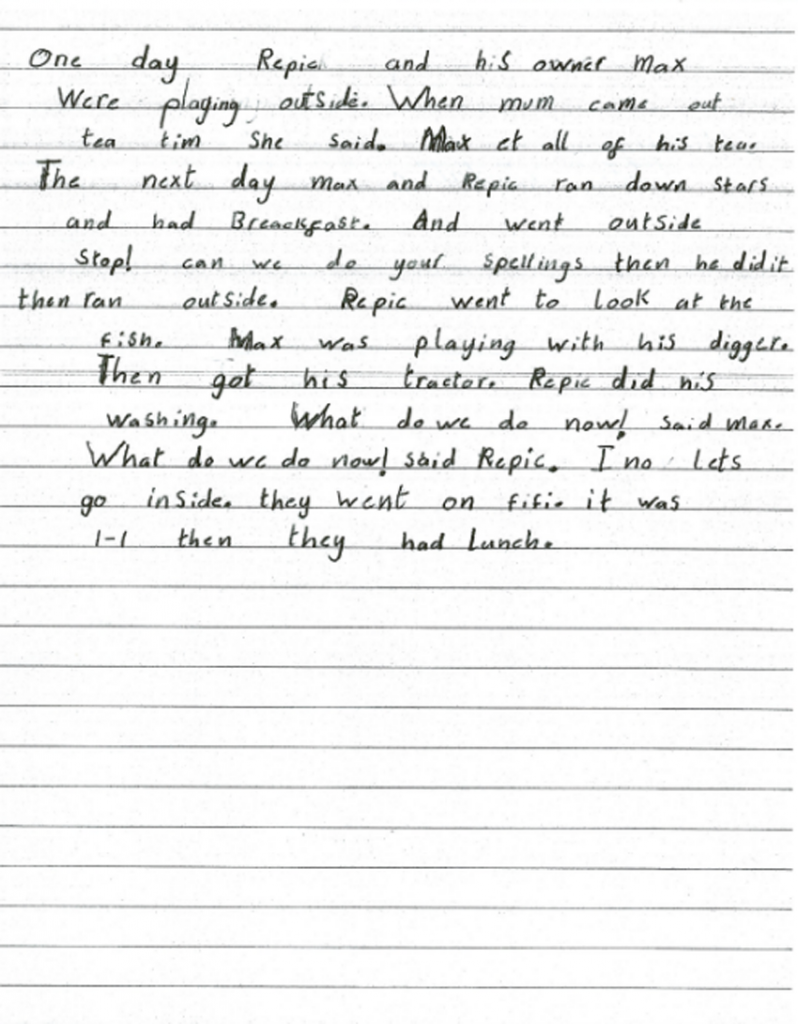 One day Repic and his owner Max
Were playing outside. When mum came out
tea tim She said. Max et all of his tea.
The next day max and Repic ran down stars
and had Breackfast. And went outside
Stop! can we do your Spellings then he did it
then ran outside. Repic went to look at the
fish. Max was playing with his digger.
Then got his tractor. Repic did his
washing. What do we do now! said max.
What do we do now! said Repic. I no lets
go inside. they went on fifi. it was
1-1 then they had Lunch.